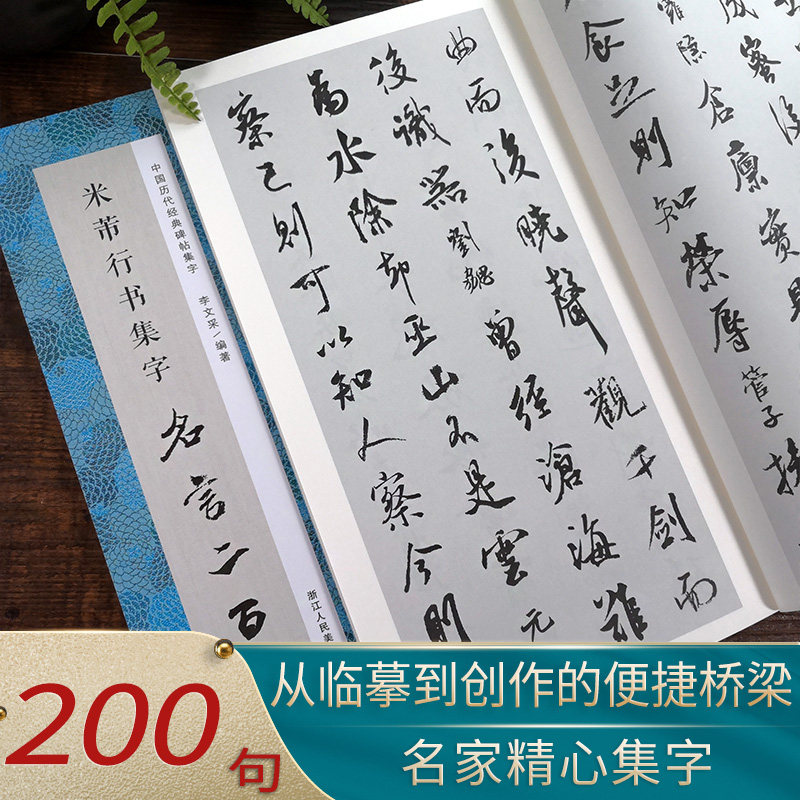 中国历代经典碑帖集字 李文采|编著
米芾行书集字
名言二百
浙江人民美
成蜜後
羅隱倉廩實
食足則知榮辱管子扶
曲而後曉聲觀千劍而
後識器劉勰曾經滄海難
為水除却巫山不是雲元
察己則可以知人察今則
200句
从临摹到创作的便捷桥梁
名家精心集字